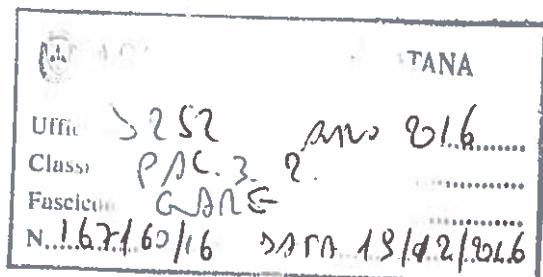 TANA
Uffic S252 ANNO 2016
Class PAC. 3. 2.
Fascico GARE
N. 167160/16 DATA 19/12/2016